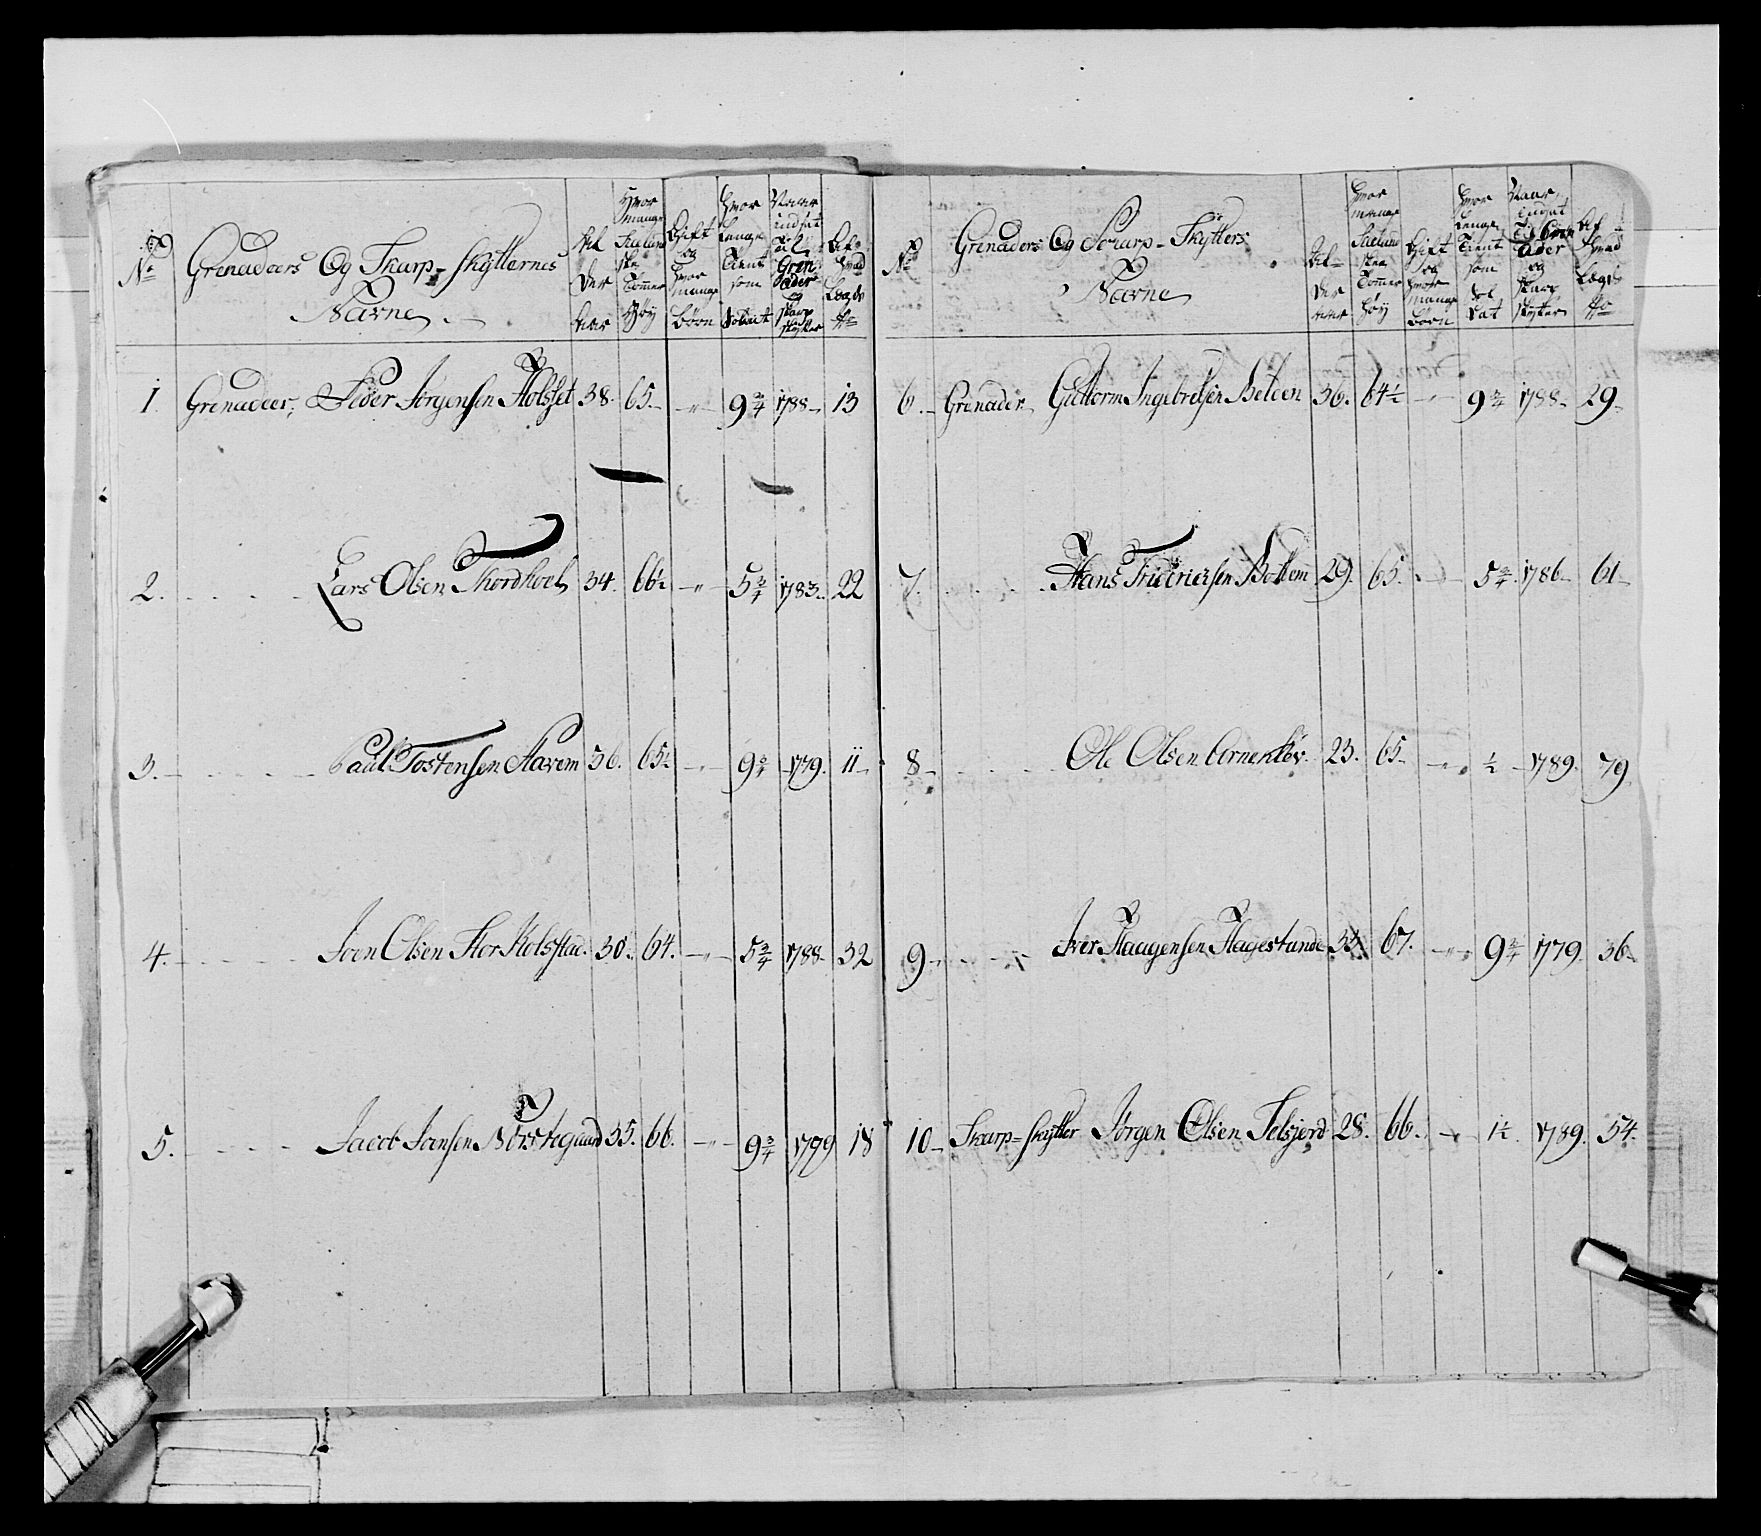 No Grenadeers Og Skarp-skytternes Navne Alder Hvor mange Siælandske Tommer Høy Gift og Hvor mange Børn Hvor Længe Tient som Soldat Naar indsat til Grenader og skarp skytter Af hvad Lægds No
1. Grenadeer, Peder Jørgensen Holsset 38. 65. -"- 9 3/4 1788 13
2. Lars Olsen Thordhoel 34. 66 1/2 -"- 5 3/4 1783. 22
3. Paul Tostensen Havem 36. 65 1/2 -"- 9 3/4 1779. 11
4. Joen Olsen Stor Kolsstad 30. 64. -"- 5 3/4 1788 32
5. Jacob Jonsen Norstegaard 35. 66. -"- 9 3/4 1779 18
No Grenaders Og Scarp-Skytters Navne Alder Hvor mange Siælandske Tommer høy Gift og Hvor mange børn Hvor Længe Tient som Soldat Naar Indsat til Grenader og skarp skytter Af Hvad Lægds No
6. Grenader Guttorm Ingebretsen Beleen 36. 64 1/2 -"- 9 3/4 1788 29
7. Hans Fridrichsen Bottem 29. 65. -"- 5 3/4 1786 61
8 Ole Olsen Arnenkløv 23. 65 -"- 1/2 1789. 79
9 Iver Haagensen Hagestande 67. -"- 9 3/4 1779 36
10 Skarp-skytter Jørgen Olsen Selsjord 28. 66. -"- 1 1/2 1789. 54.